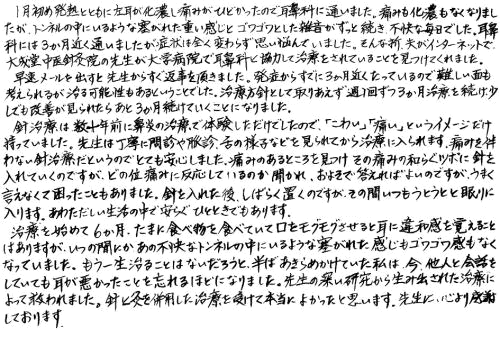 1月初め発熱とともに左耳が化濃し痛みがひどかったので耳鼻科に通いました。痛みも化濃もなくなりまし
たが、トンネルの中にいるような塞がれた重い感じとゴワゴワとした雑音がずっと続き、不快な毎日でした。耳鼻
科には3か月近く通いましたが症状は全く変わらず思い悩んでいました。そんな折、夫がインターネットで、
大成堂中医針灸院の先生が大学病院で耳鼻科と協力して治療をされていることを見つけてくれました。
早速メールを出すと先生からすぐ返事を頂きました。発症からすでに3か月近くたっているので難しい面も
考えられるが治る可能性もあるということでした。治療方針として取りあえず週1回ずつ3か月治療を続け、少
しでも改善が見られたらあと3か月続けていくことになりました。
針治療は数十年前に鼻炎の治療で体験しただけでしたので、「こわい」「痛い」というイメージだけ
持っていました。先生は丁寧に問診や脈診、舌の様子などを見られてから治療に入られます。痛みを伴
わない針治療だというのでとても安心しました。痛みのあるところを見つけその痛みの和らぐツボに針を
入れていくのですが、どの位痛みに反応しているのか聞かれ、およそで答えればよいのですが、うまく
言えなくて困ったこともありました。針を入れた後、しばらく置くのですが、その間いつもうとうとと眠りに
入ります。あわただしい生活の中で安らぐひとときでもあります。
治療を始めて6か月、たまに食べ物を食べていて口をモグモグさせると耳に違和感を覚えること
はありますが、いつの間にかあの不快なトンネルの中にいるような塞がれた感じもゴワゴワ感もなく
なっていました。もう一生治ることはないだろうと、半ばあきらめかけていた私は、今、他人と会話を
していても耳が悪かったことを忘れるほどになりました。先生の深い研究から生み出された治療に
よって救われました。針と灸を併用した治療を受けて本当によかったと思います。先生に、心より感謝
しております。